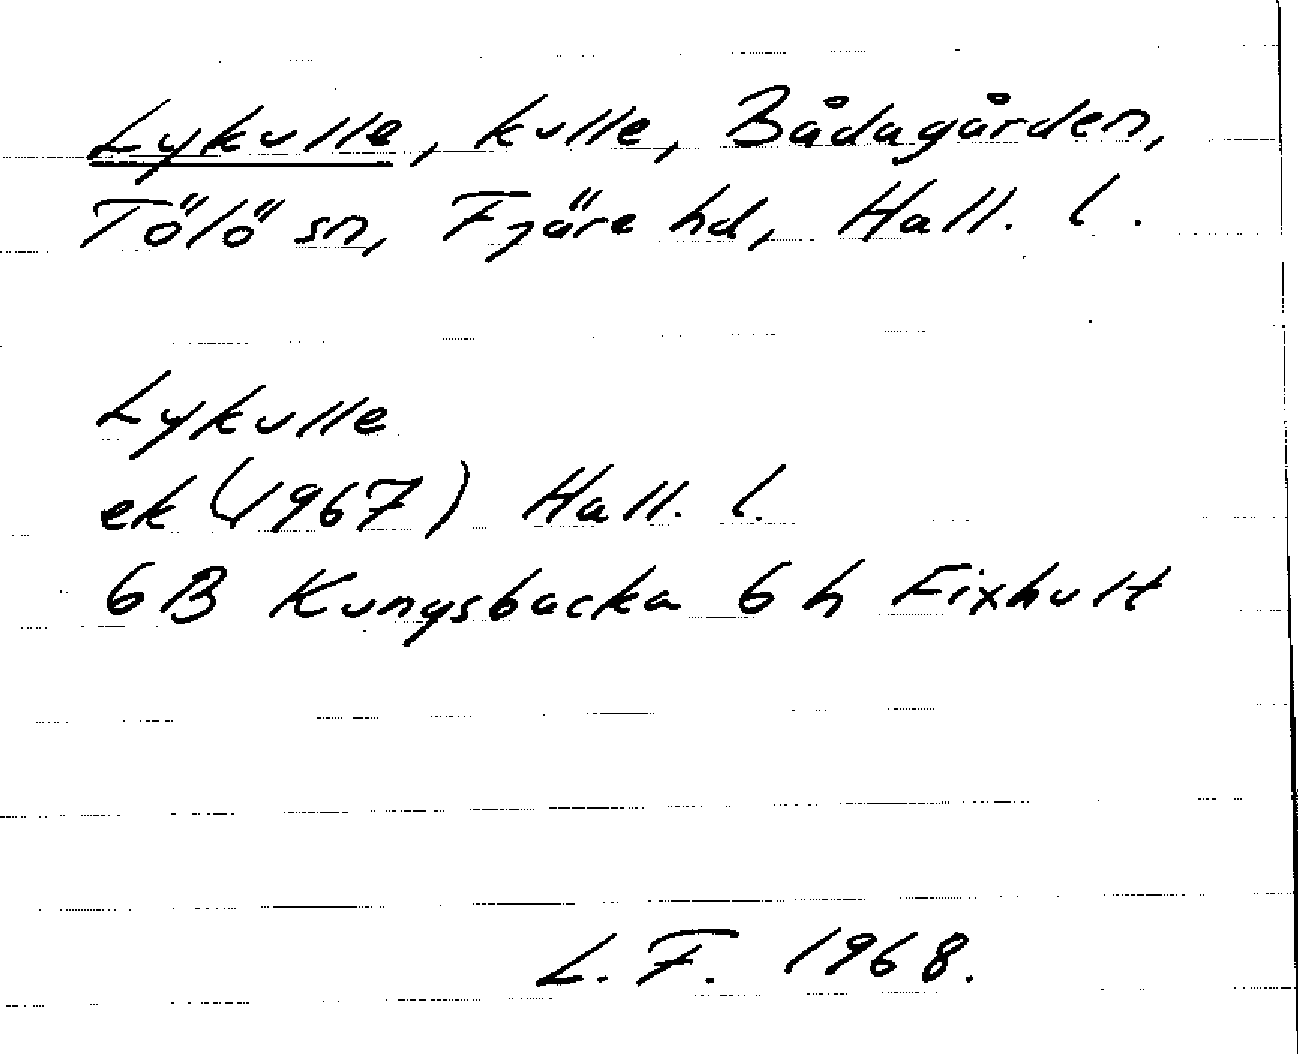 Lykulle, kulle, Bådagården,
Tölö sn, Fjäre hd, Hall. l.
Lykulle
ek (1967) Hall. l.
6B Kungsbacka 6 h Fixhult
L. F. 1968.